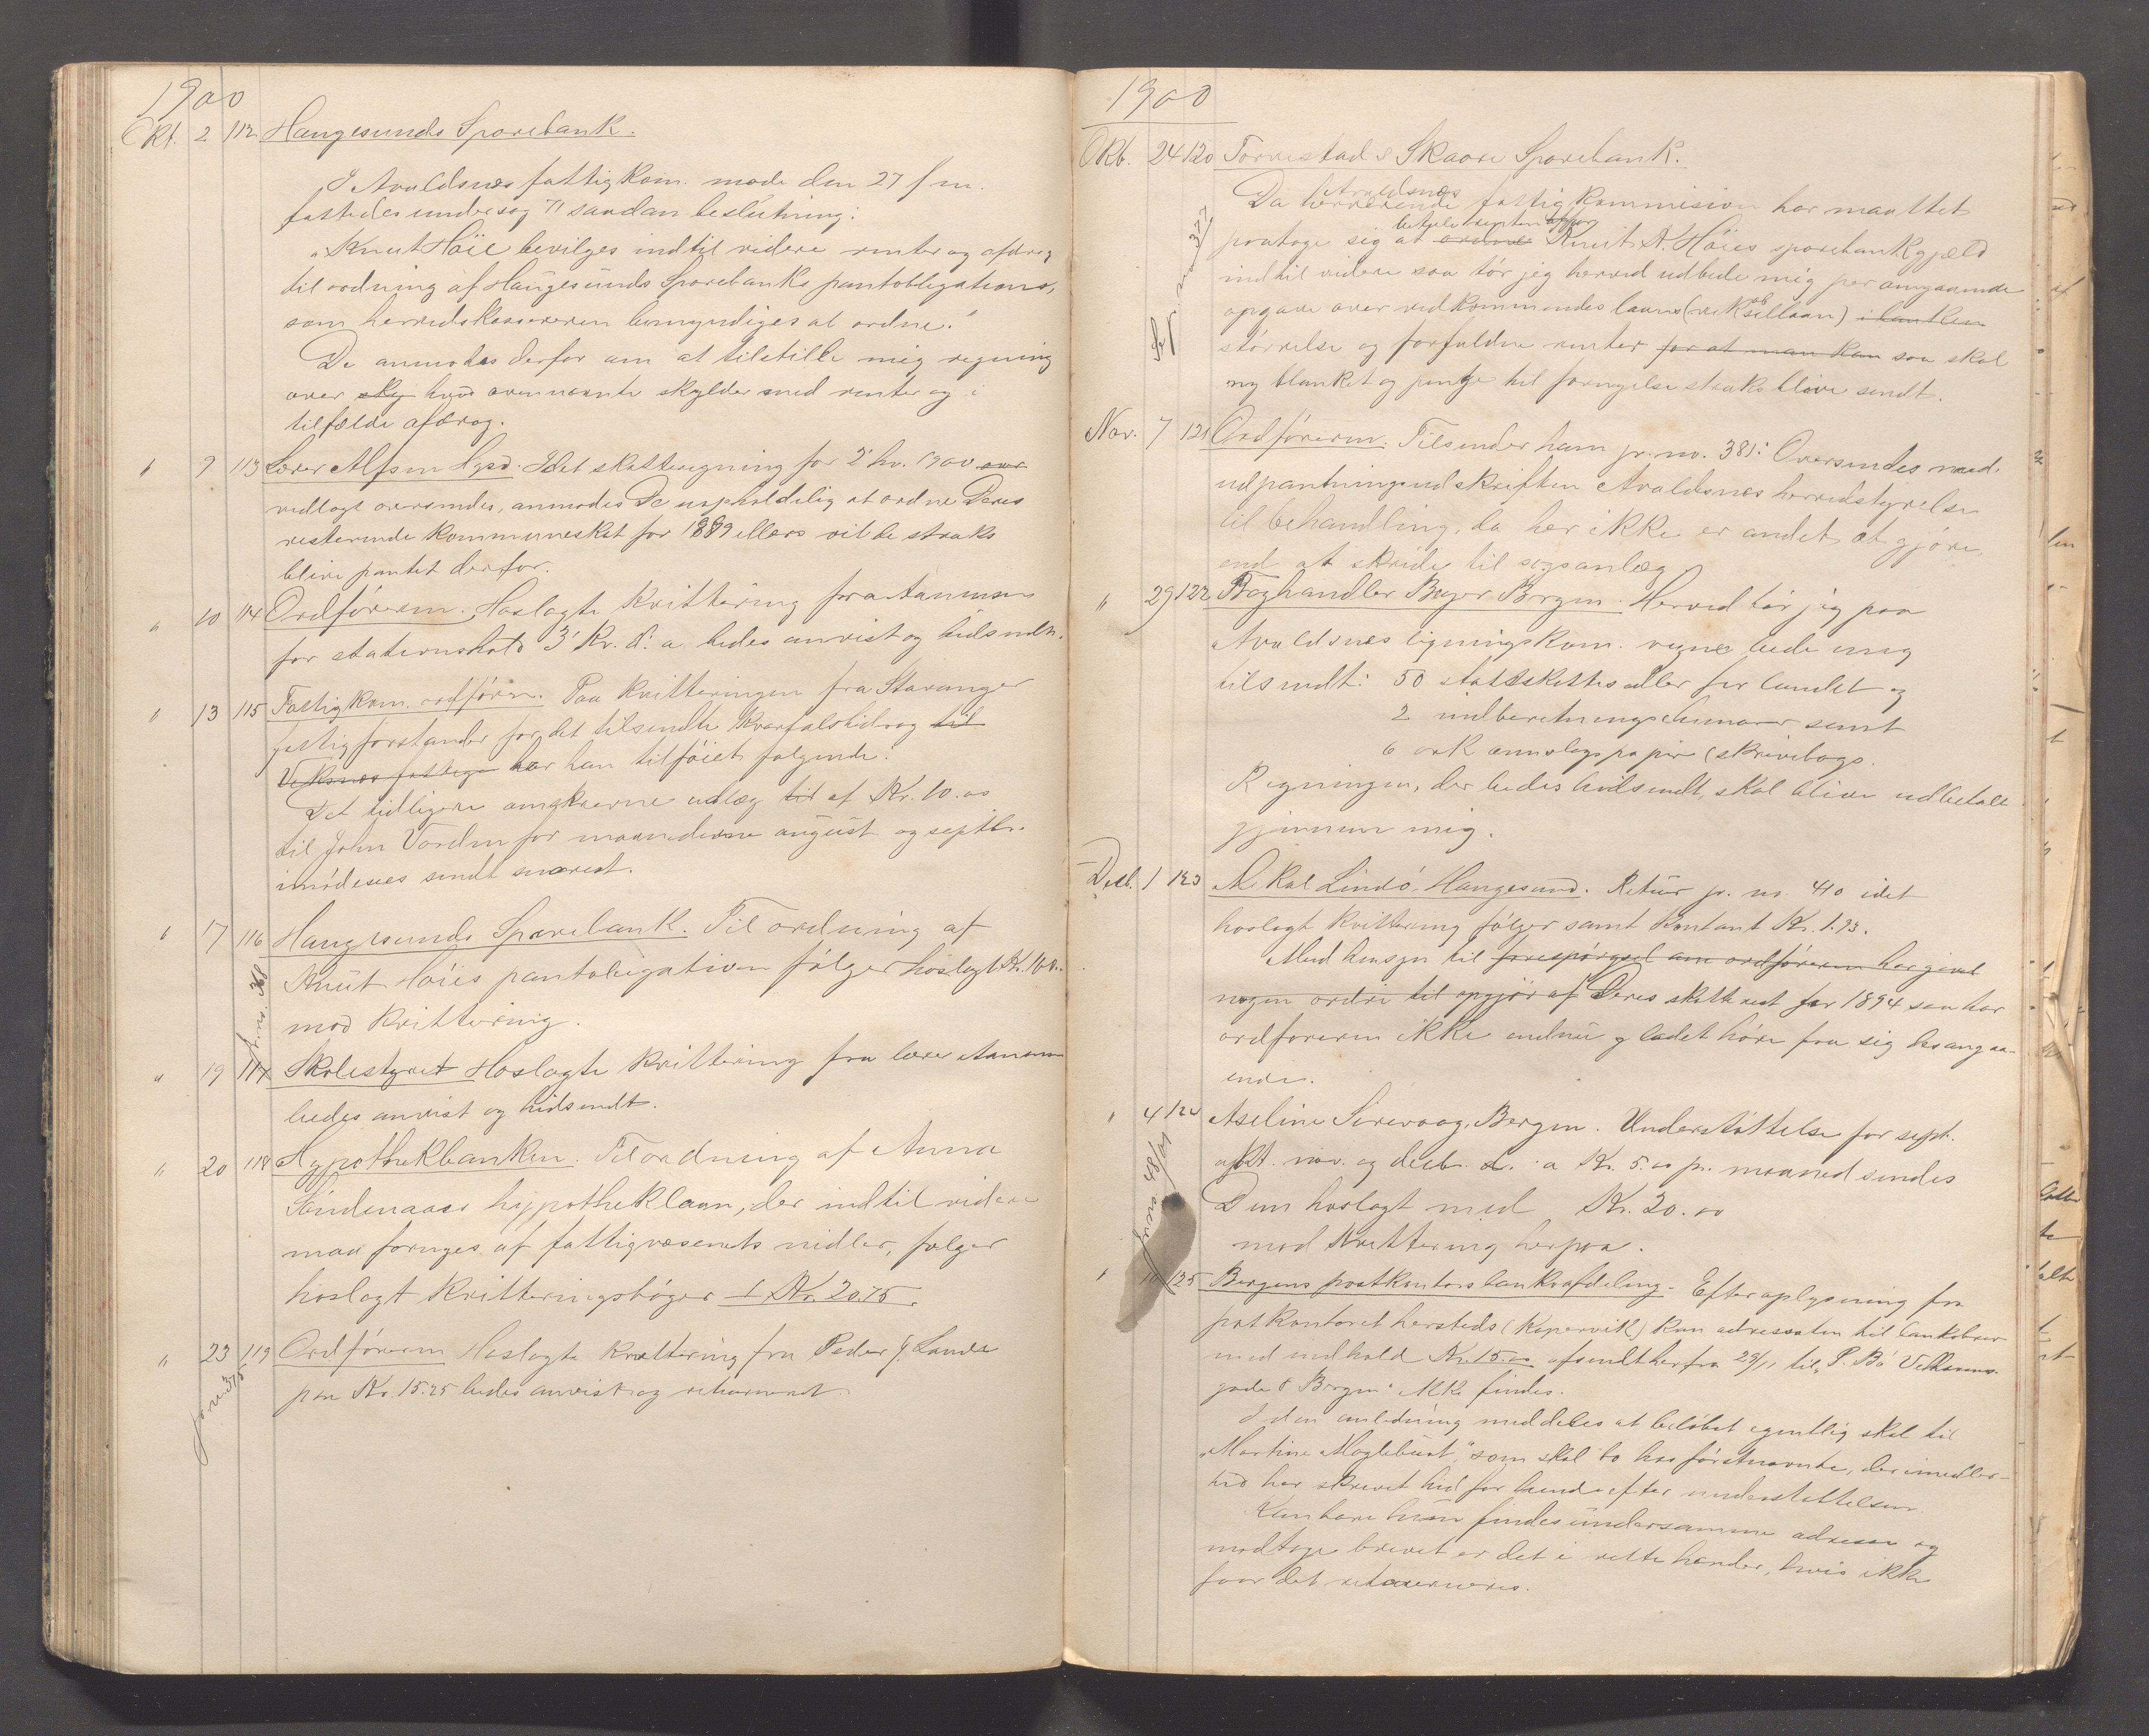 1900
Okt. 2 112 Haugesunds Sparebank.
I Avaldsnæs fattigkom. møde den 27 f m.
fattedes under sag 71 saadan beslutning:
"Knut Høie bevilges indtil videre renter og afdrag
til ordning af Haugesunds Sparebanks pantobligations,
som herredskassereren bemyndiges at ordne."
De anmodes derfor om at tilstille mig regning
over hvad ovennævnte skylder med renter og i
tilfælde afdrag.
" 9 113 Lærer Alfsen Hgsd. Idet skatteregning for 2' hv. 1900
vedlagt oversendes, anmodes De uopholdelig at ordne Deres
resterende kommuneskat for 1889 ellers vil de straks
blive pantet derfor.
" 10 114 Ordføreren. Hoslagte kvittering fra Aanensen
for stationshold 3' kv. d: a. bedes anvist og hidsendt.
" 13 115 Fattigkom. ordfører. Paa kvitteringen fra Stavanger
fattigforstander for det tilsendte kvartalsbidrag til
har han tilføiet følgende:
Det tidligere omskrevne udlæg til af Kr. 10.00
til John Vorden for maanederne august og septbr.
imødesees sendt snarest.
" 17 116 Haugesunds Sparebank. Til ordning af
Knut Høies pantobligation følger hoslagt Kr. 100.
mod kvittering.
" 19 117 Skolestyret Hoslagte kvittering fra lærer Aanensen
bedes anvist og hidsendt.
" 20 118 Hypothekbanken. Til ordning af Anna
Søndenaaes hypotheklaan, der indtil videre
maa fornyes af fattigvæsenets midler, følger
hoslagt kvitteringsbøger + Kr. 20.75.
" 23 119 Ordføreren Hoslagte kvittering fra Peder J. Lande
paa Kr. 15.25 bedes anvist og returneret.
jr. no. 375
1900
Okb. 24 120 Torvestad & Skaare Sparebank.
Avaldsnæs
Da herværende fattigkommision har maattet
betale renter og
paatage sig at ordne Knut A. Høies sparebankgjæld
indtil videre saa tør jeg herved udbede mig per omgaaende
opgave over vedkommendes laans (veksellaan) i banken
størrelse og forfaldne renter for at man kan saa skal
ny blanket og penge til fornyelse straks blive sendt.
Nov. 7 121 Ordføreren. Tilsender ham jr. no. 381: Oversendes med
udpantningsudskriften Avaldsnes herredstyrelse
til behandling, da her ikke er andet at gjøre,
end at skride til sagsanlæg.
" 29 122 Boghandler Beyer Bergen. Herved tør jeg paa
Avaldsnes ligningskom. vegne bede mig
tilsendt: 50 statsskattesedler for landet og
2 indberetningsskemaer samt
6 ark omslagspapir (skrivebogs.
Regningen, der bedes hidsendt, skal blive udbetalt
gjennem mig.
Decb. 1 123 Mikal Lindø Haugesund. Retur jr. no. 410 idet
hoslagt kvittering følger samt kontant Kr. 1.93.
Med hensyn til forespørgsel om ordføreren har givet
nogen ordre til opgjør af Deres skatterest for 1894 saa har
ordføreren ikke endnu ladet høre fra sig desangaa-
ende.
" 4 124 Aseline Sirevaag, Bergen. Understøttelse for sept.
okt. nov. og decbr. d. a Kr. 5.00 pr. maaned sendes
Dem hoslagt med Kr. 20.00
mod kvittering herpaa.
" 10 125 Bergens postkontors bankoafdeling. Efter oplysning fra
postkontoret hersteds (Kopervik) kan adressaten til bankobrev
med indhold Kr. 15.00 afsendt herfra 29/11 til "P. Bø
gade 8 Bergen" ikke findes.
I den anledning meddeles at beløbet egentlig skal til
"Martine Moglebust," som skal bo hos førstnævnte, der imidler-
tid har skrevet hid for hende efter understøttelsen
Kan bare hun findes under samme adresse og
modtage brevet er det i rette hænder, hvis ikke
faar det returneres.